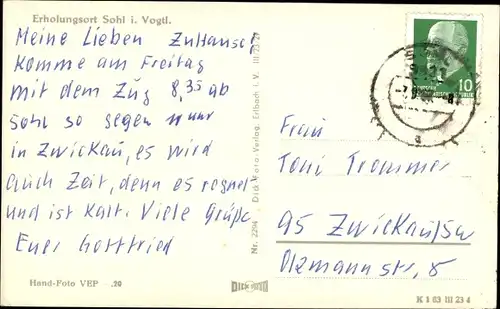 Erholungsort Sohl i. Vogtl.
Meine Lieben Zuhause!
Komme am Freitag
mit dem Zug 8,35 ab
Sohl so gegen 11 Uhr
in Zwickau, es wird
auch Zeit, denn es regnet
und ist kalt. Viele Grüße
Euer Gottfried
Hand-Foto VEP .20
Nr. 2294 Dick-Foto-Verlag, Erlbach i. V.
DICK
10
Frau
Toni Trommer
95 Zwickau/Sa
Olzmannstr, 8
K 1 83 III 23 4